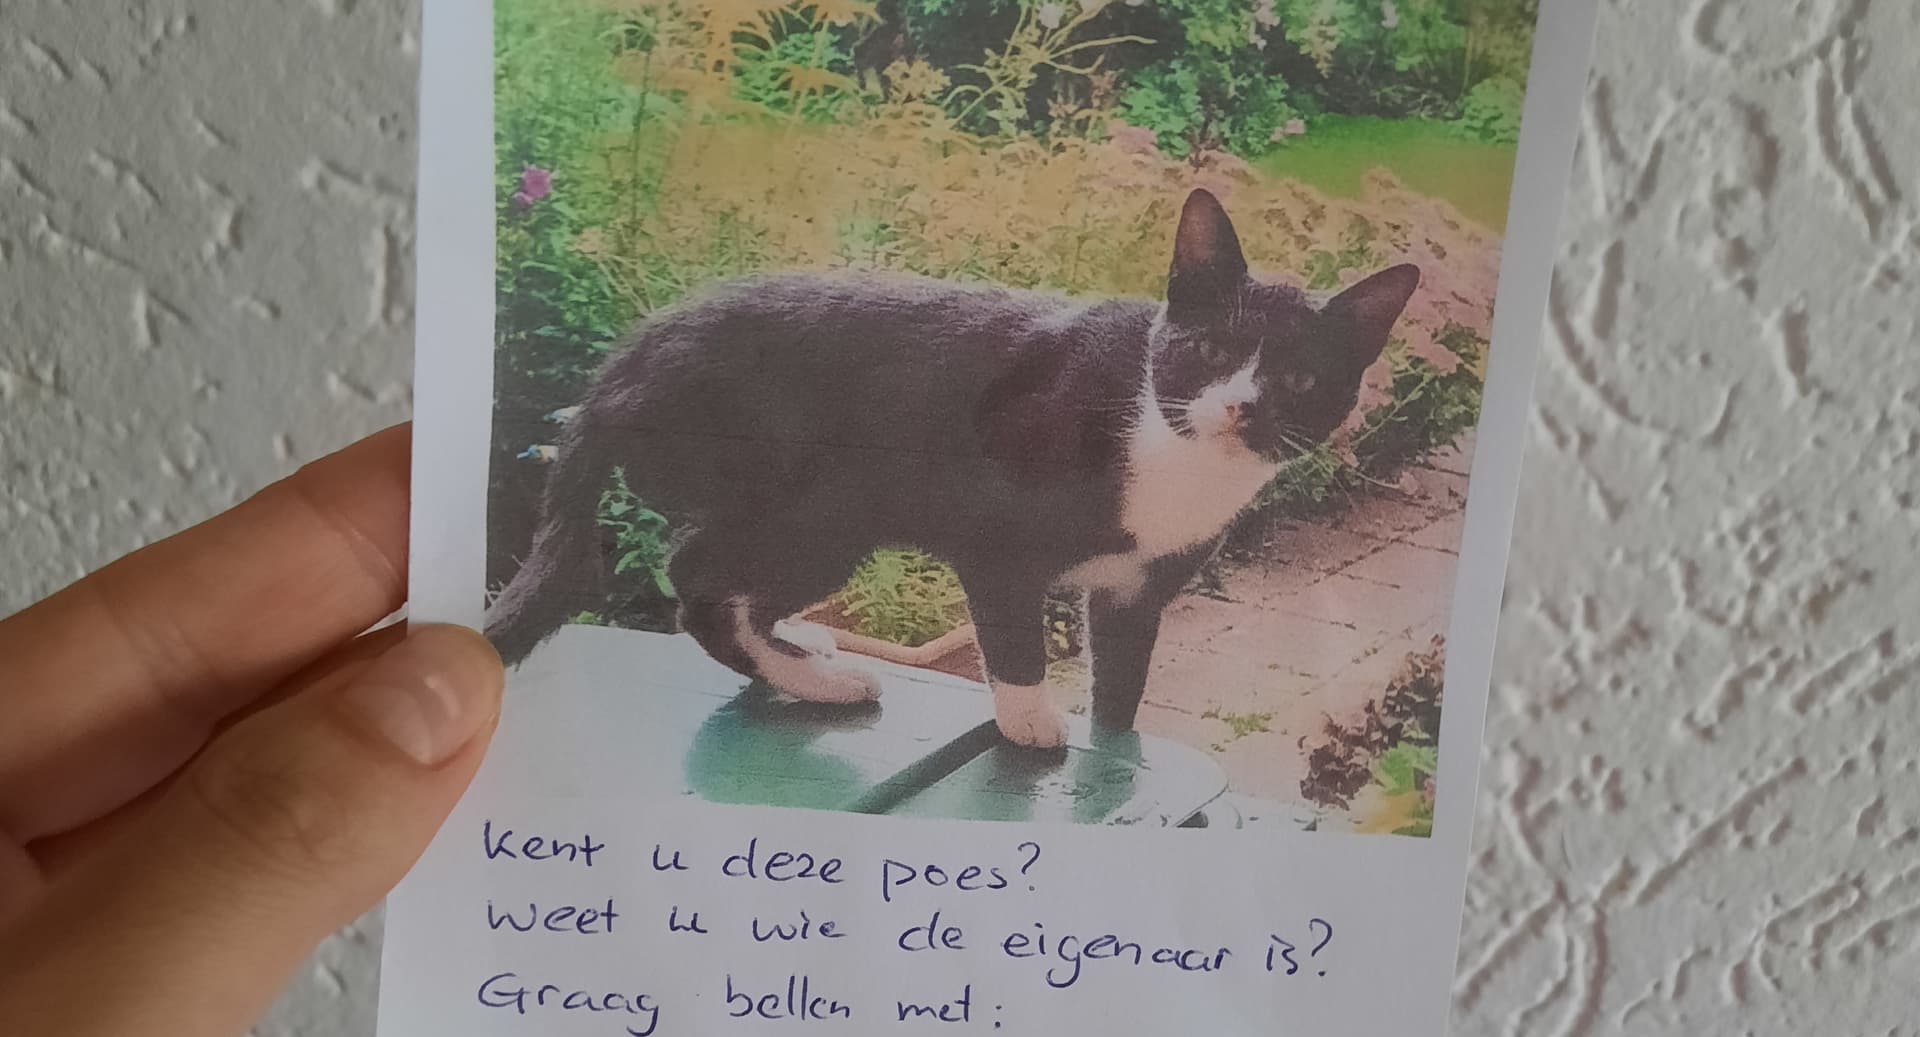 Kent u deze poes?
Weet u wie de eigenaar is?
Graag bellen met: